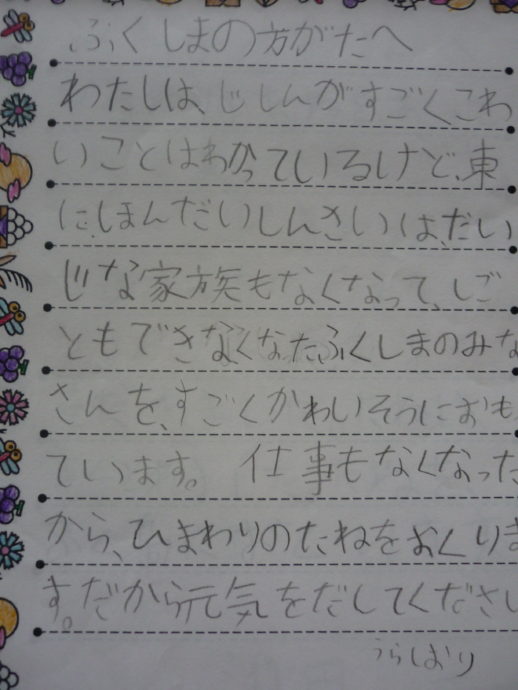 ふくしまの方がたへ
わたしは、じしんがすごくこわ
いことはわかっているけど、東
にほんだいしんさいは、だい
じな家族もなくなって、しご
ともできなくなたふくしまのみな
さんを、すごくかわいそうにおも
ています。 仕事もなくなった
から、ひまわりのたねをおくりま
す。だから元気をだしてください
うらしおり